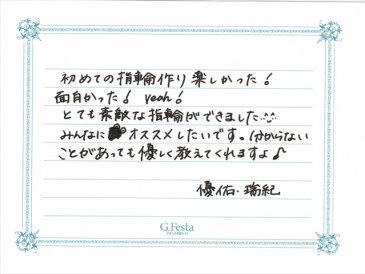 初めての指輪作り楽しかった!
面白かった! yeah!
とても素敵な指輪ができました
みんなにオススメしたいです。分からない
ことがあっても優しく教えてくれますよ♪
優佑・瑞紀
G.Festa
DIAMOND